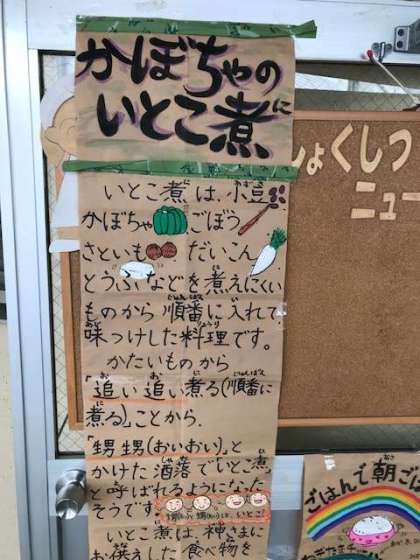 かぼちゃの
いとこ煮に
いとこ煮は、小豆あずき、
かぼちゃ ごぼう
さといも だいこん
とうふなどを煮えにくい
ものから順番じゅんばんに入れて
味つけした料理りょうりです。
かたいものから
「追お い追お い煮る(順番じゅんばんに
煮る)」ことから、
「甥甥(おいおい)」と
かけた洒落しゃれでいとこ煮
と呼ばれるようになった
そうです。
いとこ煮は、神さまに
お供えした食べ物を
しょくしつ
ニュー
ごはんで朝ご